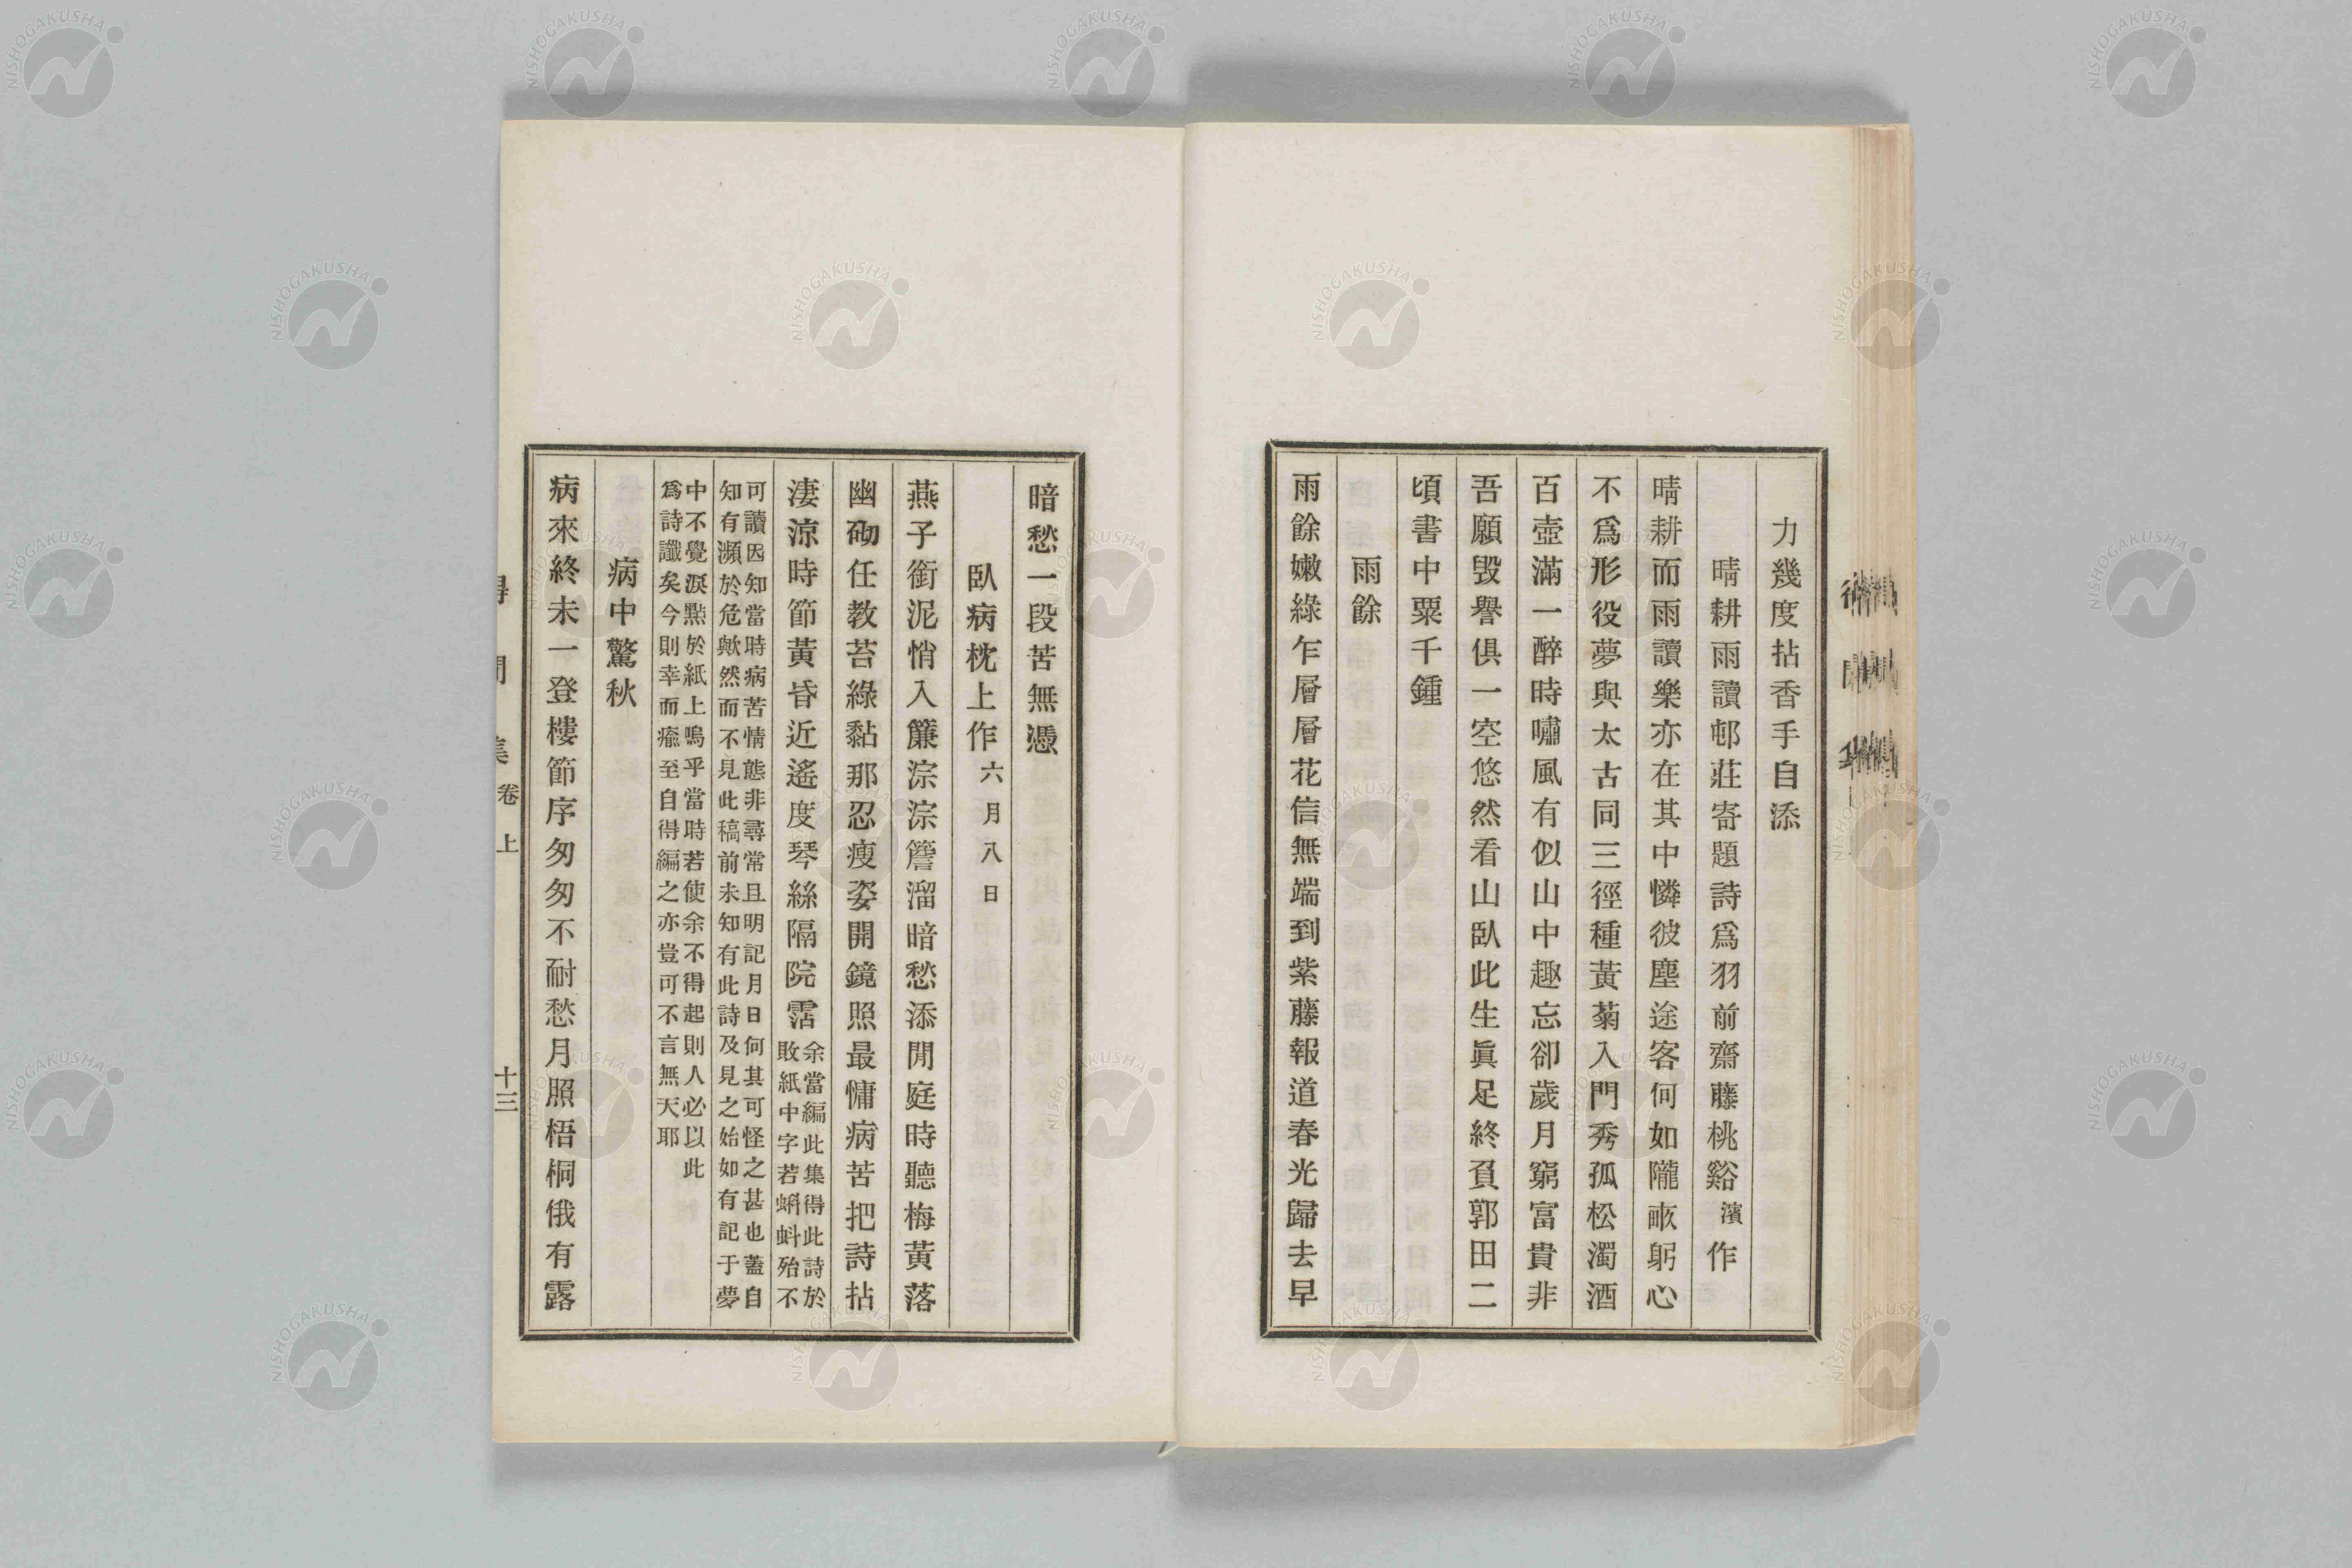 力幾度拈香手自添
晴耕雨讀邨莊寄題詩爲羽前齋藤桃谿濱作
晴耕而雨讀樂亦在其中憐彼塵途客何如隴畝躬心
不爲形役夢與太古同三徑種黃菊入門秀孤松濁酒
百壺滿一醉時嘯風有似山中趣忘卻歲月窮富貴非
吾願毀譽俱一空悠然看山臥此生眞足終負郭田二
頃書中粟千鍾
雨餘
雨餘嫩綠乍層層花信無端到紫藤報道春光歸去早
暗愁一段苦無憑
臥病枕上作六月八日
燕子銜泥悄入簾淙淙簷溜暗愁添閒庭時聽梅黃落
幽砌任教苔綠黏那忍瘦姿開鏡照最慵病苦把詩拈
淒涼時節黃昏近遙度琴絲隔院霑
余當編此集得此詩於
敗紙中字若蝌蚪殆不
可讀因知當時病苦情態非尋常且明記月日何其可怪之甚也蓋自
知有瀕於危歟然而不見此稿前未知有此詩及見之始如有記于夢
中不覺淚點於紙上嗚乎當時若使余不得起則人必以此
爲詩讖矣今則幸而瘉至自得編之亦豈可不言無天耶
病中驚秋
病來終未一登樓節序匆匆不耐愁月照梧桐俄有露
卷上
十三
NISHOGAKUSHA